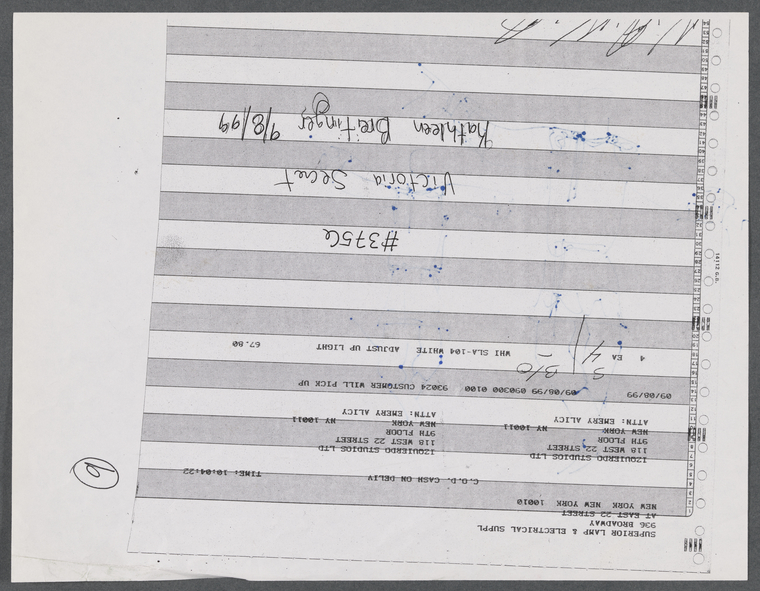 SUPERIOR LAMP & ELECTRICAL SUPPL
936 BROADWAY
AT EAST 22 STREET
NEW YORK NEW YORK 10010
C.O.D. CASH ON DELIV TIME: 10:04:22
IZQUIERDO STUDIOS LTD IZQUIERDO STUDIOS LTD
118 WEST 22 STREET 118 WEST 22 STREET
9TH FLOOR 9TH FLOOR
NEW YORK NY 10011 NEW YORK NY 10011
ATTN: EMERY ALICY ATTN: EMERY ALICY
09/08/99 09/08/99 090300 0100 93024 CUSTOMER WILL PICK UP
S B/O
4 EA 4 - WHI SLA-104 WHITE ADJUST UP LIGHT 67.80
#3756
Victoria Secret
Kathleen Breitinger 9/8/99
6
14112 G.G.